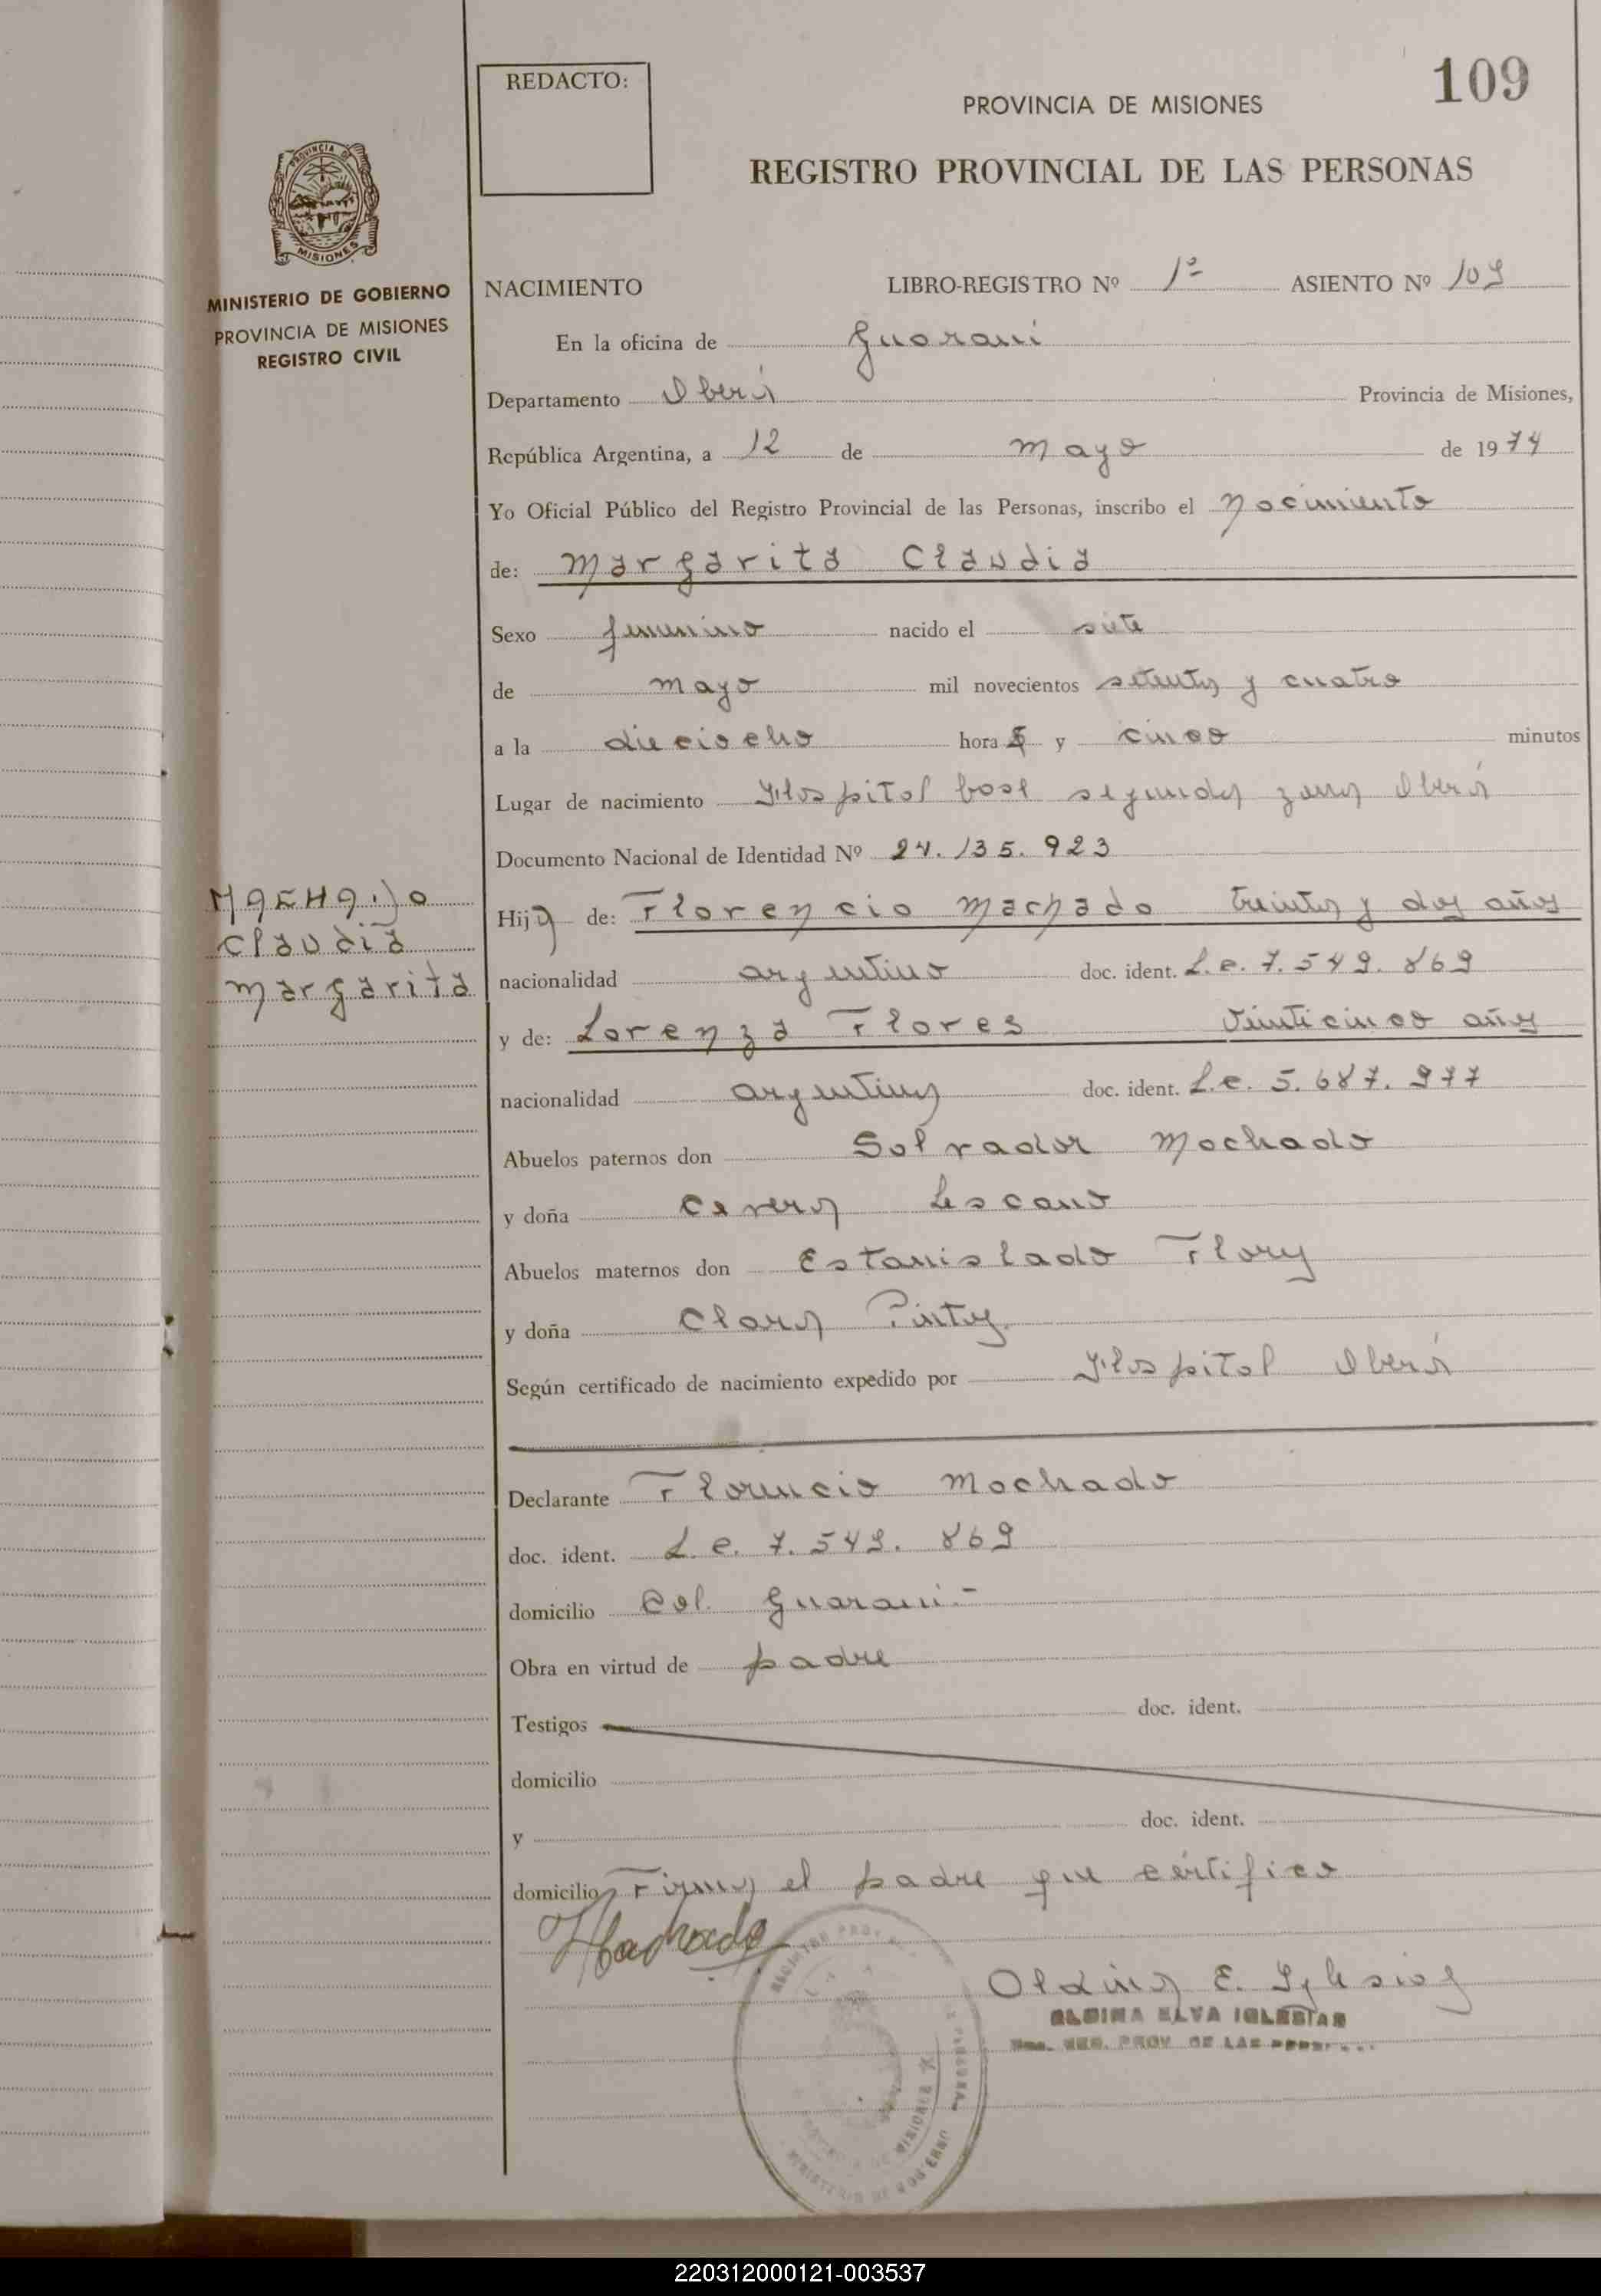 109
REDACTO:
PROVINCIA DE MISIONES
REGISTRO PROVINCIAL DE LAS PERSONAS
PROVINCIA DE
MISIONES
MINISTERIO DE GOBIERNO
PROVINCIA DE MISIONES
REGISTRO CIVIL
NACIMIENTO LIBRO-REGISTRO Nº 1º ASIENTO Nº 109
En la oficina de Guarani
Departamento Oberá Provincia de Misiones,
República Argentina, a 12 de mayo de 1974
Yo Oficial Público del Registro Provincial de las Personas, inscribo el nacimiento
de: Margarita Claudia
Sexo femenino nacido el siete
de mayo mil novecientos setenta y cuatro
a la dieciocho horas y cinco minutos
Lugar de nacimiento Hospital base segunda zona Oberá
Documento Nacional de Identidad Nº 24.135.923
MACHADO
Claudia
Margarita
Hija de: Florencio Machado treinta y dos años
nacionalidad argentino doc. ident. L.e. 7.549.869
y de: Lorenza Flores veinticinco años
nacionalidad argentina doc. ident. L.c. 5.687.977
Abuelos paternos don Salvador Machado
y doña Lescano
Abuelos maternos don Estanislado Flores
y doña Clara Pintos
Según certificado de nacimiento expedido por Hospital Oberá
Declarante Florencio Machado
doc. ident. L.e. 7.549.869
domicilio Col. Guarani-
Obra en virtud de padre
Testigos doc. ident.
domicilio
y doc. ident.
domicilio Firma el padre que certifico
Machado
Oldina E. Iglesias
ELVA IGLESIAS
REG. PROV. DE LAS
MINISTERIO DE GOBIERNO
220312000121-003537